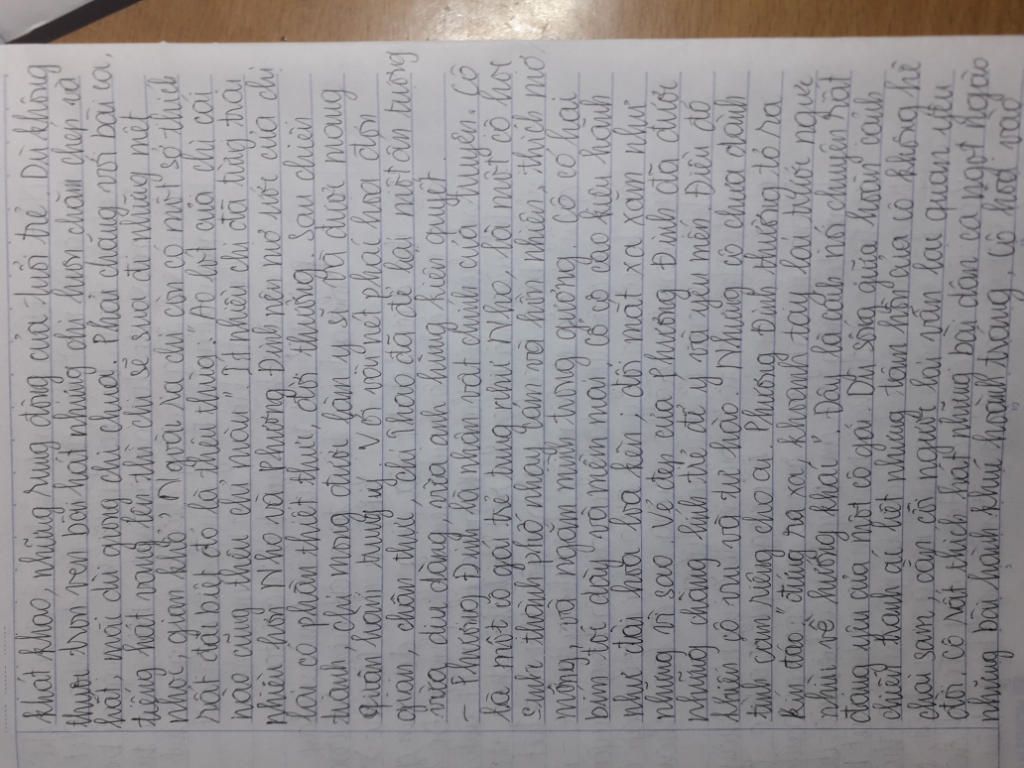 khát khao, những rung động của tuổi trẻ. Dù không
thuộc trọn vẹn bản hát nhưng chị luôn chăm chép lời
hát, mải dù giọng chị chua. Phải chăng với bài ca,
tiếng hát vang lên thì chị sẽ xua đi những mệt
nhọc, gian khổ? Ngoài ra chị còn có một sở thích
rất đặc biệt đó là thêu thùa: "Áo lót của chị cái
nào cũng thêu chỉ màu". Ít nhiều chị đã từng trải
nhiều hơn Nho và Phương Định nên mơ ước của chị
lại có phần thiết thực, đời thường. Sau chiến
tranh, chị mong được làm y sĩ và được mang
quân hàm trung úy. Với vài nét phác họa đơn
giản, chân thực, chị Thao đã để lại một ấn tượng
vừa dịu dàng, vừa anh hùng kiên quyết
- Phương Định là nhân vật chính của truyện. Cô
là một cô gái trẻ trung như Nho, là một cô học
sinh thành phố nhạy cảm và hồn nhiên, thích mơ
mộng, và ngắm mình trong gương. Cô có hai
bím tóc dày và mềm mại, cổ cô cao kiêu hãnh
như đài hoa loa kèn, đôi mắt xa xăm như
những vì sao. Vẻ đẹp của Phương Định đã được
những chàng lính trẻ để ý và yêu mến. Điều đó
khiến cô vui và tự hào. Nhưng cô chưa dành
tình cảm riêng cho ai. Phương Định thường tỏ ra
kín đáo "đứng ra xa, khoanh tay lại trước ngực
nhìn về hướng khác". Đây là cách nói chuyện rất
đáng yêu của một cô gái. Dù sống giữa hoàn cảnh
chiến tranh ác liệt nhưng tâm hồn của cô không hề
chai sạm, cằn cỗi ngược lại vẫn lạc quan yêu
đời. Cô rất thích hát những bài dân ca ngọt ngào
những bài hành khúc hoành tráng, cô hoà vào